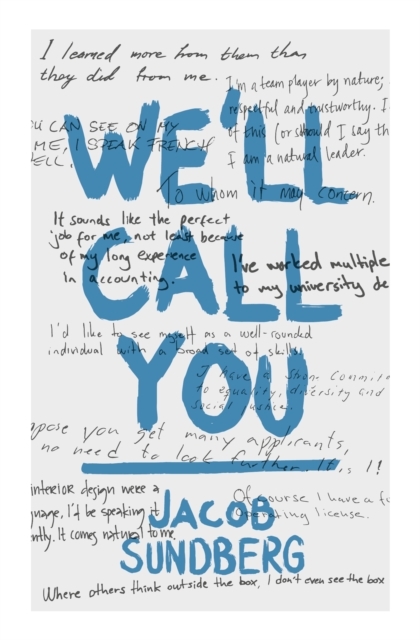 I learned more from them than
they did from me.
I'm a team player by nature;
respectful and trustworthy. I
of this (or should I say th
I am a natural leader.
U CAN SEE ON MY
ME, I SPEAK FRENCH
ELL.
WE'LL
To whom it may concern.
It sounds like the perfect
job for me, not least because
of my long experience
in accounting.
I've worked multiple
to my university de
CALL
I'd like to see myself as a well-rounded
individual with a broad set of skills
I have a strong commit
to equality, diversity and
social justice.
YOU
pose you get many applicants,
no need to look further. It is I!
interior design were a
nguage, I'd be speaking it
ntly. It comes natural to me.
Of course I have a fo
operating license.
JACOB
SUNDBERG
Where others think outside the box, I don't even see the box